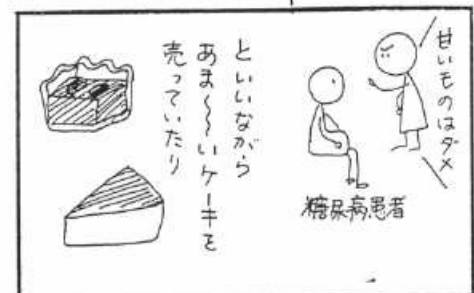 甘いものはダメ
糖尿病患者
といいながら
あま〜〜いケーキを
売っていたり